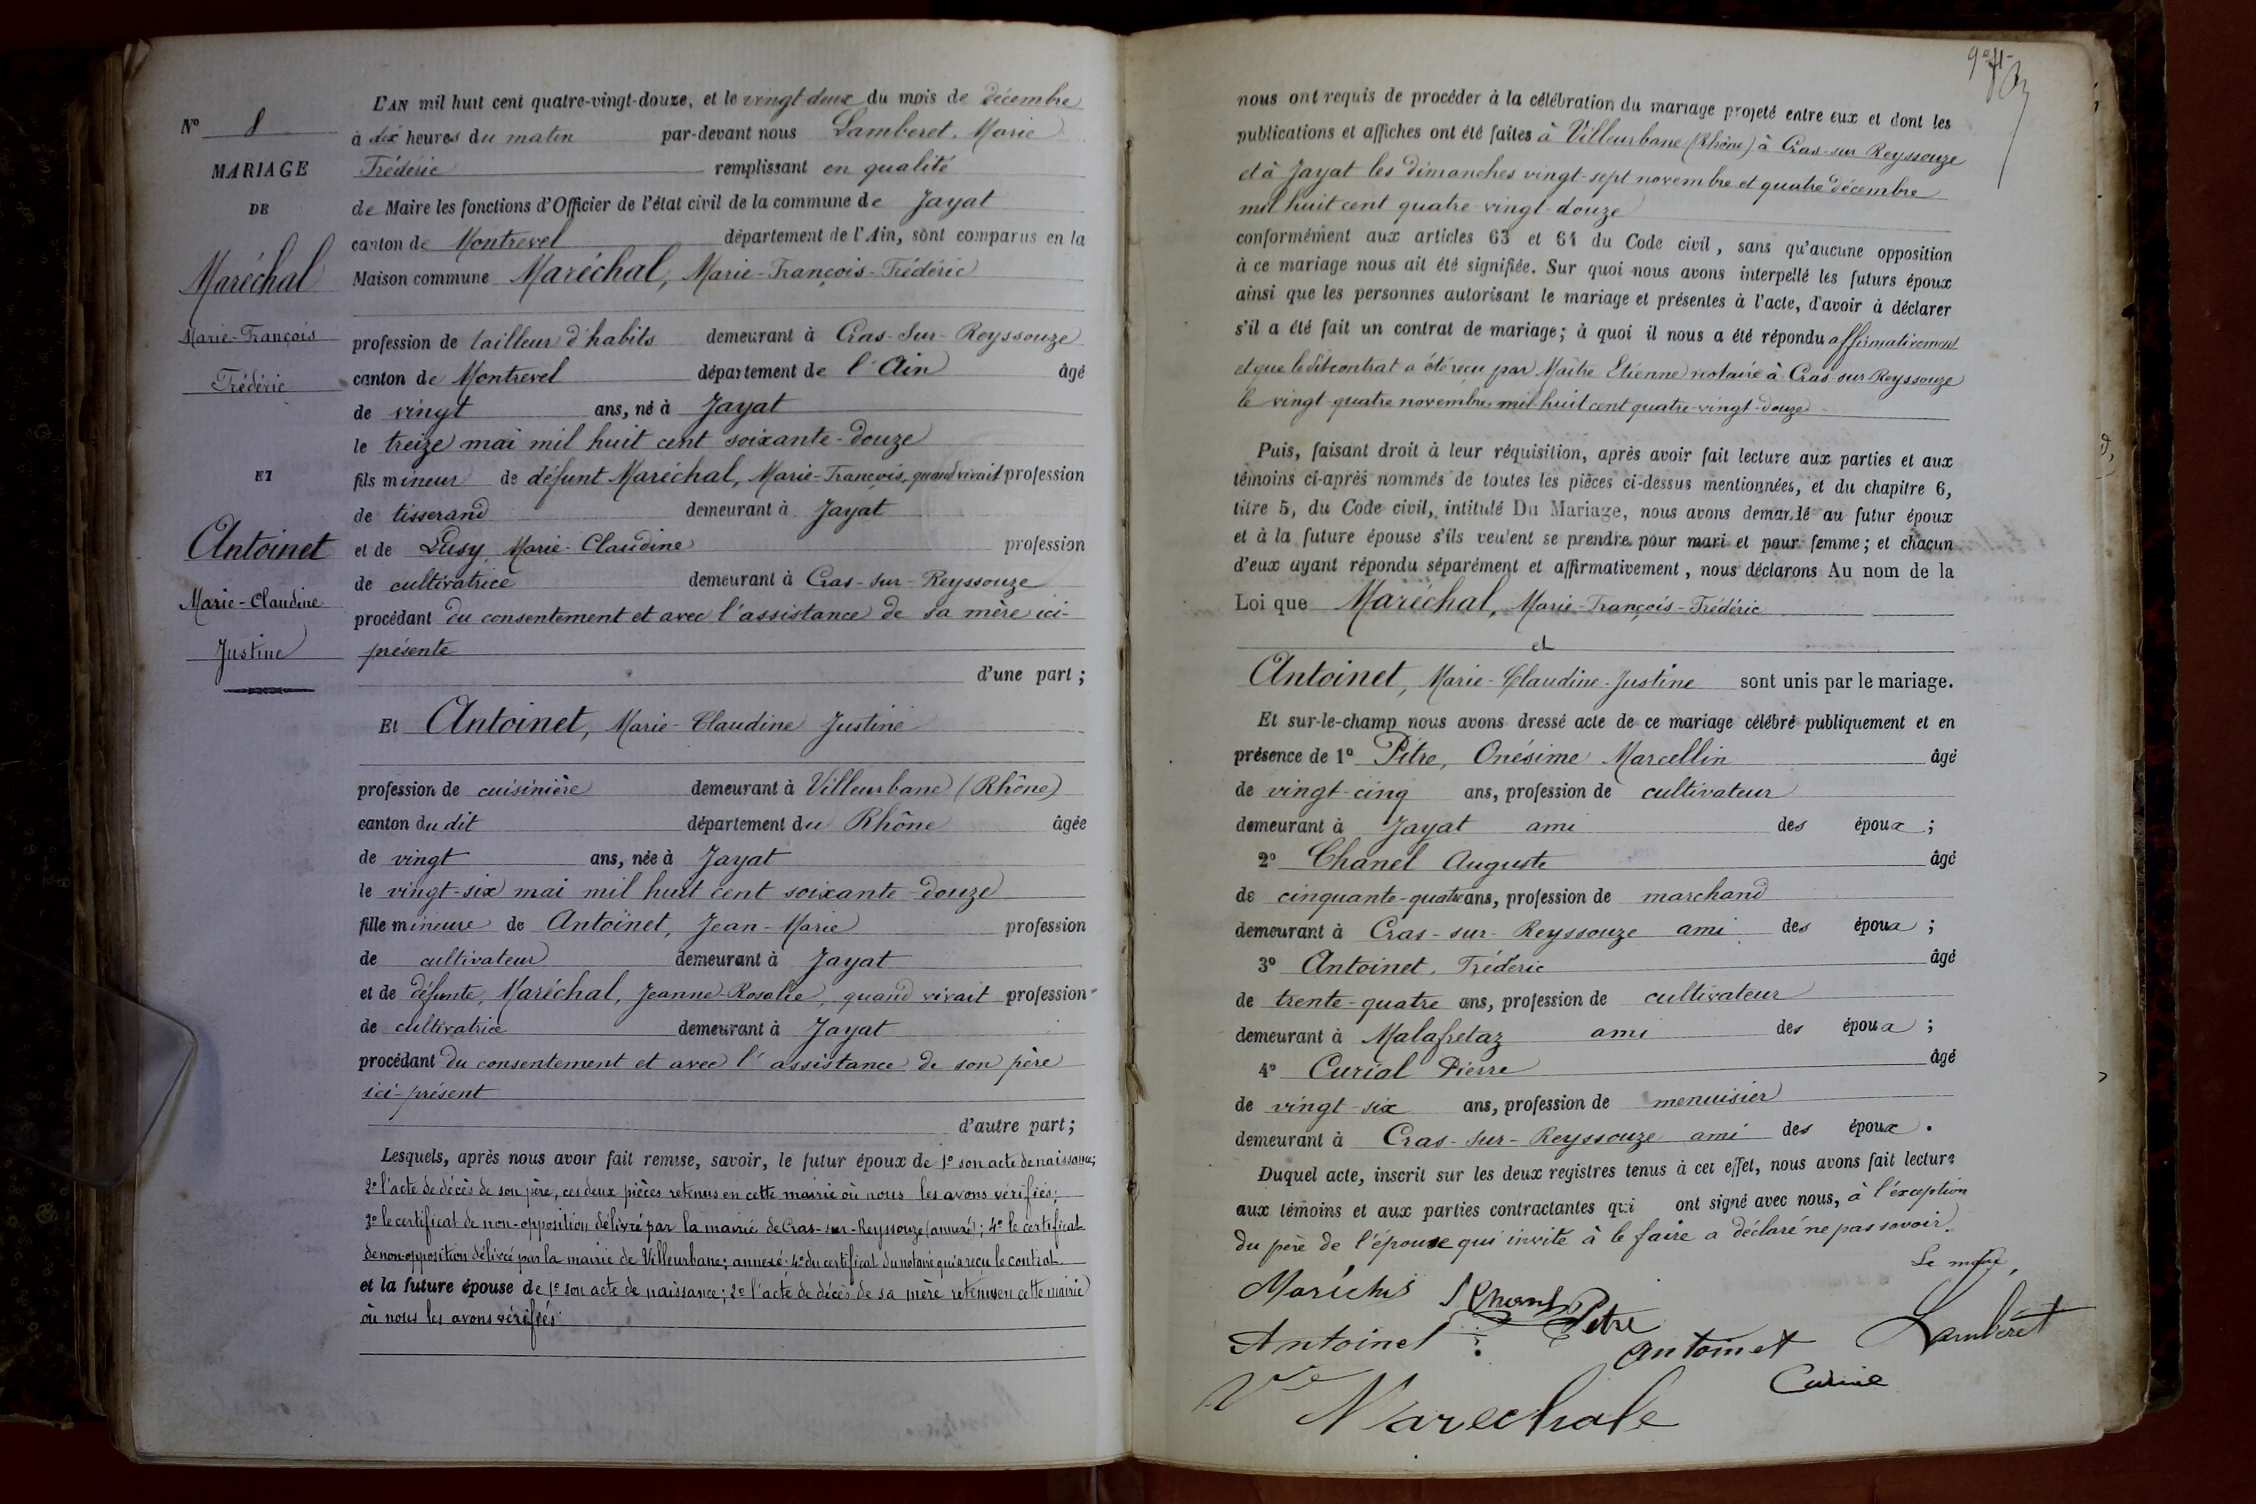 N° 8
MARIAGE
DE
Maréchal
Marie-François
Frédéric
ET
Antoinet
Marie-Claudine
Justine
L'AN mil huit cent quatre-vingt-douze, et le vingt-deux du mois de décembre
à dix heures du matin par-devant nous Lamberet, Marie
Frédéric remplissant en qualité
de Maire les fonctions d'Officier de l'état civil de la commune de Jayat
canton de Montrevel département de l'Ain, sont comparus en la
Maison commune Maréchal, Marie-François-Frédéric
profession de tailleur d'habits demeurant à Cras-Sur-Reyssouze
canton de Montrevel département de l'Ain âgé
de vingt ans, né à Jayat
le treize mai mil huit cent soixante-douze
fils mineur de défunt Maréchal, Marie-François, quand vivait profession
de tisserand demeurant à Jayat
et de Pusy Marie-Claudine profession
de cultivatrice demeurant à Cras-sur-Reyssouze
procédant du consentement et avec l'assistance de sa mère ici-
présente
d'une part ;
Et Antoinet, Marie-Claudine Justine
profession de cuisinière demeurant à Villeurbane (Rhône)
canton du dit département du Rhône âgée
de vingt ans, née à Jayat
le vingt-six mai mil huit cent soixante-douze
fille mineure de Antoinet, Jean-Marie profession
de cultivateur demeurant à Jayat
et de défunte, Maréchal, Jeanne-Rosalie, quand vivait profession
de cultivatrice demeurant à Jayat
procédant du consentement et avec l'assistance de son père
ici-présent
d'autre part ;
Lesquels, après nous avoir fait remise, savoir, le futur époux de 1° son acte de naissance;
2° l'acte de décès de son père, ces deux pièces retenus en cette mairie où nous les avons vérifiés;
3° le certificat de non-opposition délivré par la mairie de Cras-sur-Reyssouze (annexé); 4° le certificat
de non-opposition délivré par la mairie de Villeurbane; annexé; 4° du certificat du notaire qui a reçu le contrat
et la future épouse de 1° son acte de naissance; 2° l'acte de décès de sa mère retenus en cette mairie
où nous les avons vérifiés
nous ont requis de procéder à la célébration du mariage projeté entre eux et dont les
publications et affiches ont été faites à Villeurbane (Rhône) à Cras-sur Reyssouze
et à Jayat les dimanches vingt-sept novembre et quatre décembre
mil huit cent quatre-vingt-douze
conformément aux articles 63 et 64 du Code civil, sans qu'aucune opposition
à ce mariage nous ait été signifiée. Sur quoi nous avons interpellé les futurs époux
ainsi que les personnes autorisant le mariage et présentes à l'acte, d'avoir à déclarer
s'il a été fait un contrat de mariage; à quoi il nous a été répondu affirmativement
et que le dit contrat a été reçu par Maître Etienne notaire à Cras sur Reyssouze
le vingt-quatre novembre mil huit cent quatre-vingt-douze
Puis, faisant droit à leur réquisition, après avoir fait lecture aux parties et aux
témoins ci-après nommés de toutes les pièces ci-dessus mentionnées, et du chapitre 6,
titre 5, du Code civil, intitulé Du Mariage, nous avons demandé au futur époux
et à la future épouse s'ils veulent se prendre pour mari et pour femme; et chacun
d'eux ayant répondu séparément et affirmativement, nous déclarons Au nom de la
Loi que Maréchal, Marie-François-Frédéric
et
Antoinet, Marie-Claudine-Justine sont unis par le mariage.
Et sur-le-champ nous avons dressé acte de ce mariage célébré publiquement et en
présence de 1° Pitre, Onésime Marcellin âgé
de vingt-cinq ans, profession de cultivateur
demeurant à Jayat ami des époux ;
2° Chanel Auguste âgé
de cinquante-quatre ans, profession de marchand
demeurant à Cras-sur-Reyssouze ami des époux ;
3° Antoinet, Fréderic âgé
de trente-quatre ans, profession de cultivateur
demeurant à Malafretaz ami des époux ;
4° Curial Pierre âgé
de vingt-six ans, profession de menuisier
demeurant à Cras-Sur-Reyssouze ami des époux .
Duquel acte, inscrit sur les deux registres tenus à cet effet, nous avons fait lecture
aux témoins et aux parties contractantes qui ont signé avec nous, à l'exception
du père de l'épouse qui invité à le faire a déclaré ne pas savoir.
Le maire,
Pitre
Antoinet
Antoinet
Lamberet
Vve Marechale